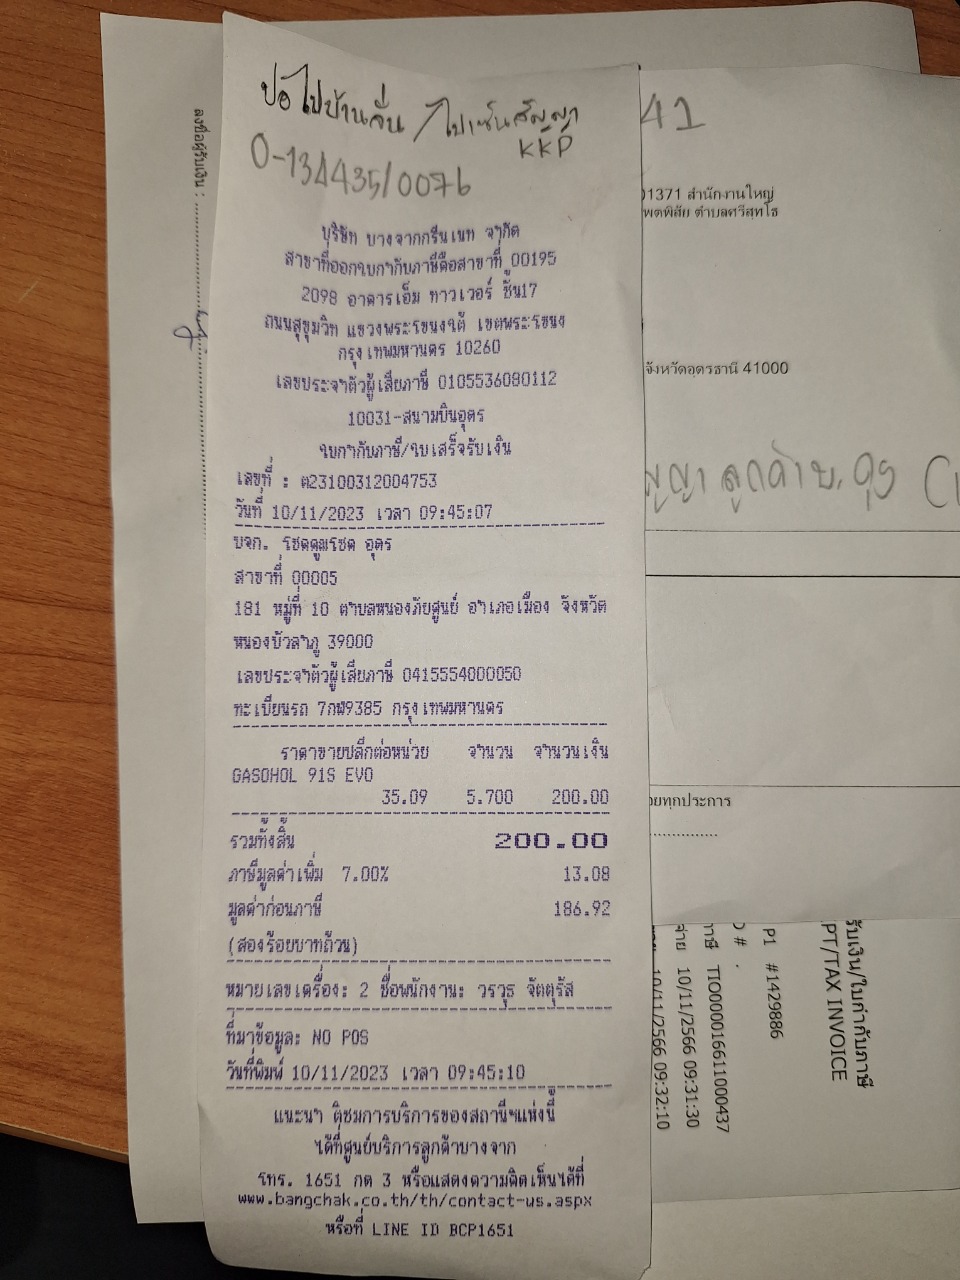 ปอไปบ้านลั่น / ไปเซ็นสัญญา
KKP
0-134435/0076
บริษัท บางจากกรีนเนท จำกัด
สาขาที่ออกใบกำกับภาษีคือสาขาที่ 00195
2098 อาคารเอ็ม ทาวเวอร์ ชั้น17
ถนนสุขุมวิท แขวงพระโขนงใต้ เขตพระโขนง
กรุงเทพมหานคร 10260
เลขประจำตัวผู้เสียภาษี 0105536080112
10031-สนามบินอุดร
ใบกำกับภาษี/ใบเสร็จรับเงิน
เลขที่ : ต23100312004753
วันที่ 10/11/2023 เวลา 09:45:07
บจก. โชคคูณโชค อุดร
สาขาที่ 00005
181 หมู่ที่ 10 ตำบลหนองภัยศูนย์ อำเภอเมือง จังหวัด
หนองบัวลำภู 39000
เลขประจำตัวผู้เสียภาษี 0415554000050
ทะเบียนรถ 7กฬ9385 กรุงเทพมหานคร
ราคาขายปลีกต่อหน่วย จำนวน จำนวนเงิน
GASOHOL 91S EVO
35.09 5.700 200.00
รวมทั้งสิ้น 200.00
ภาษีมูลค่าเพิ่ม 7.00% 13.08
มูลค่าก่อนภาษี 186.92
(สองร้อยบาทถ้วน)
หมายเลขเครื่อง: 2 ชื่อพนักงาน: วรวุธ จัตตุรัส
ที่มาข้อมูล: NO POS
วันที่พิมพ์ 10/11/2023 เวลา 09:45:10
แนะนำ ติชมการบริการของสถานีฯแห่งนี้
ได้ที่ศูนย์บริการลูกค้าบางจาก
โทร. 1651 กด 3 หรือแสดงความคิดเห็นได้ที่
www.bangchak.co.th/th/contact-us.aspx
หรือที่ LINE ID BCP1651
ลงชื่อผู้รับเงิน :
41
01371 สำนักงานใหญ่
โพศพิสัย ตำบลศรีสุทโธ
จังหวัดอุดรธานี 41000
ญญา ลูกค้า
วยทุกประการ
รับเงิน/ใบกำกับภาษี
PT/TAX INVOICE
P1 #1429886
O # .
าษี TIO000016611000437
10/11/2566 09:31:30
10/11/2566 09:32:10